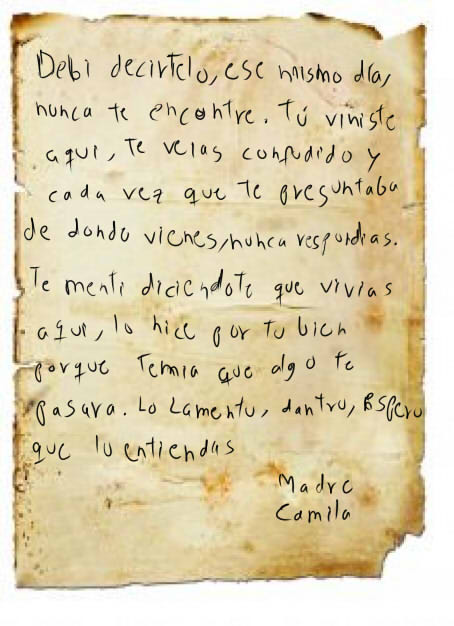 Debi decirtelo, ese mismo día,
nunca te encontre. Tú viniste
aqui, te veias confudido y
cada vez que te preguntaba
de donde vienes, nunca respondias.
Te menti diciendote que vivias
aqui, lo hice por tu bien
porque temia que algo te
pasara. Lo Lamento, dantro, Espero
que lo entiendas
Madre
Camila